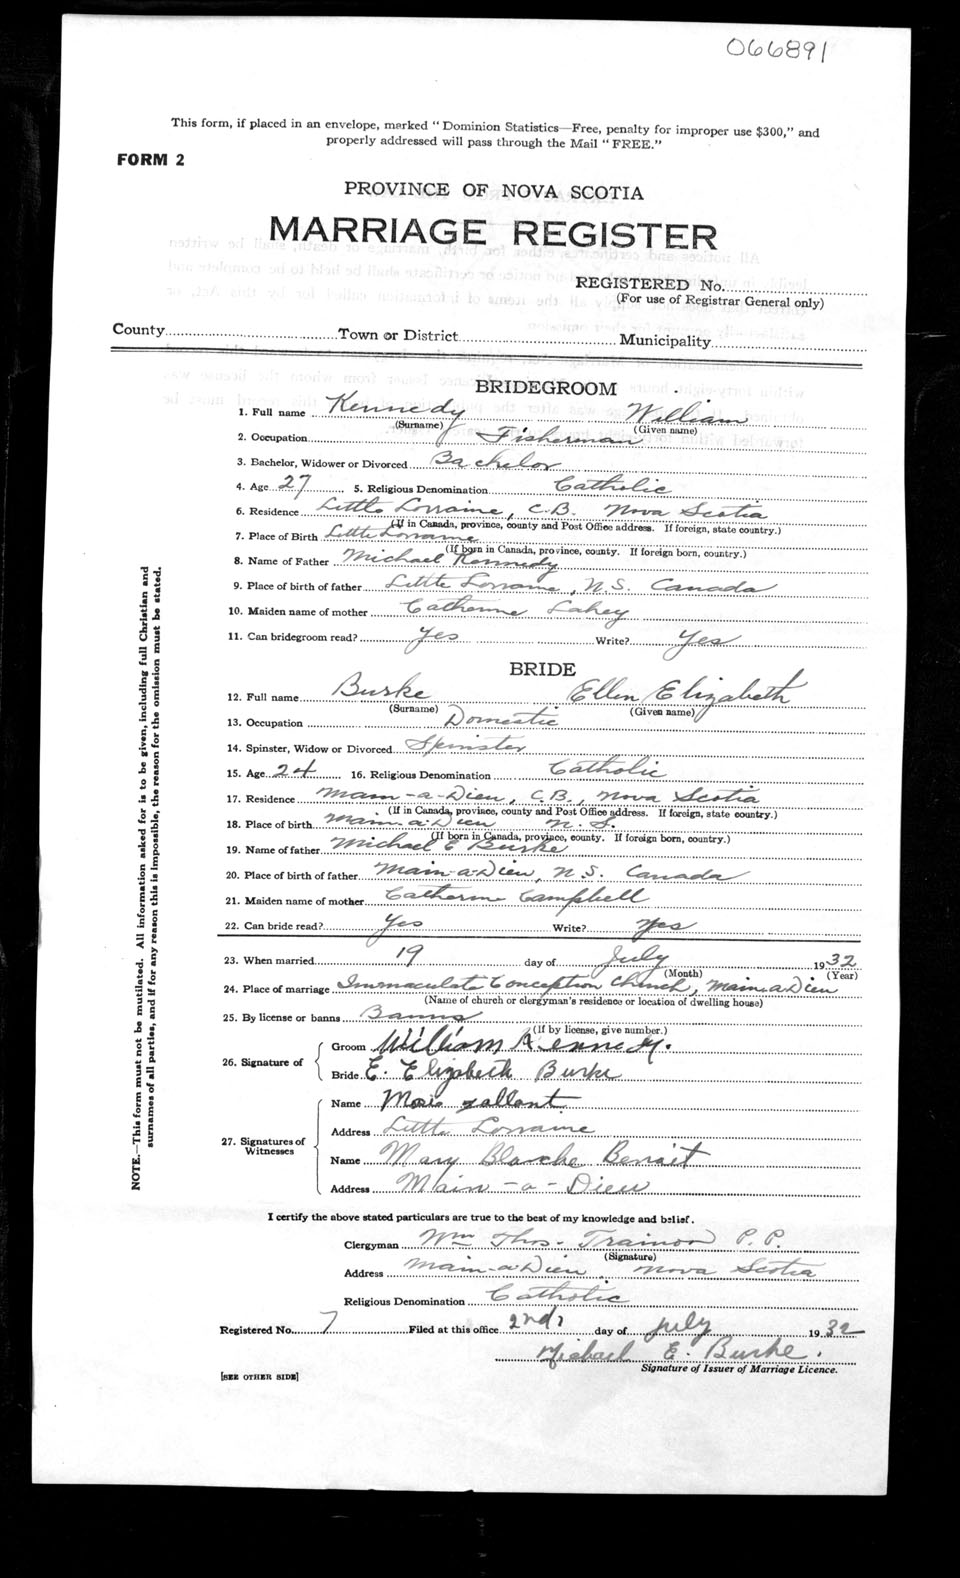 066891
This form, if placed in an envelope, marked "Dominion Statistics—Free, penalty for improper use $300," and
properly addressed will pass through the Mail "FREE."
FORM 2
PROVINCE OF NOVA SCOTIA
MARRIAGE REGISTER
REGISTERED No.
(For use of Registrar General only)
County Town or District Municipality
BRIDEGROOM
1. Full name Kennedy William
(Surname) (Given name)
2. Occupation Fisherman
3. Bachelor, Widower or Divorced Bachelor
4. Age 27 5. Religious Denomination Catholic
6. Residence Little Lorraine, C.B. Nova Scotia
(If in Canada, province, county and Post Office address. If foreign, state country.)
7. Place of Birth Little Lorraine
(If born in Canada, province, county. If foreign born, country.)
8. Name of Father Michael Kennedy
9. Place of birth of father Little Lorraine, N.S. Canada
10. Maiden name of mother Catherine Lahey
11. Can bridegroom read? Yes Write? Yes
BRIDE
12. Full name Burke Ellen Elizabeth
(Surname) (Given name)
13. Occupation Domestic
14. Spinster, Widow or Divorced Spinster
15. Age 24 16. Religious Denomination Catholic
17. Residence Main-a-Dieu, C.B., Nova Scotia
(If in Canada, province, county and Post Office address. If foreign, state country.)
18. Place of birth Main-a-Dieu N.S.
(If born in Canada, province, county. If foreign born, country.)
19. Name of father Michael E Burke
20. Place of birth of father Main-a-Dieu, N.S. Canada
21. Maiden name of mother Catherine Campbell
22. Can bride read? Yes Write? Yes
23. When married 19 day of July 1932
(Month) (Year)
24. Place of marriage Immaculate Conception Church, Main-a-Dieu
(Name of church or clergyman's residence or location of dwelling house)
25. By license or banns Banns
(If by license, give number.)
26. Signature of
Groom William Kennedy.
Bride E. Elizabeth Burke
27. Signatures of
Witnesses
Name Gallant
Address Little Lorraine
Name Mary Blanche Benoit
Address Main-a-Dieu
I certify the above stated particulars are true to the best of my knowledge and belief.
Clergyman Wm Thos. Trainor P.P.
(Signature)
Address Main-a-Dieu, Nova Scotia
Religious Denomination Catholic
Registered No. 7 Filed at this office day of July 1932
Michael E. Burke.
Signature of Issuer of Marriage Licence.
[SEE OTHER SIDE]
NOTE.—This form must not be mutilated. All information asked for is to be given, including full Christian and
surnames of all parties, and if for any reason this is impossible, the reason for the omission must be stated.